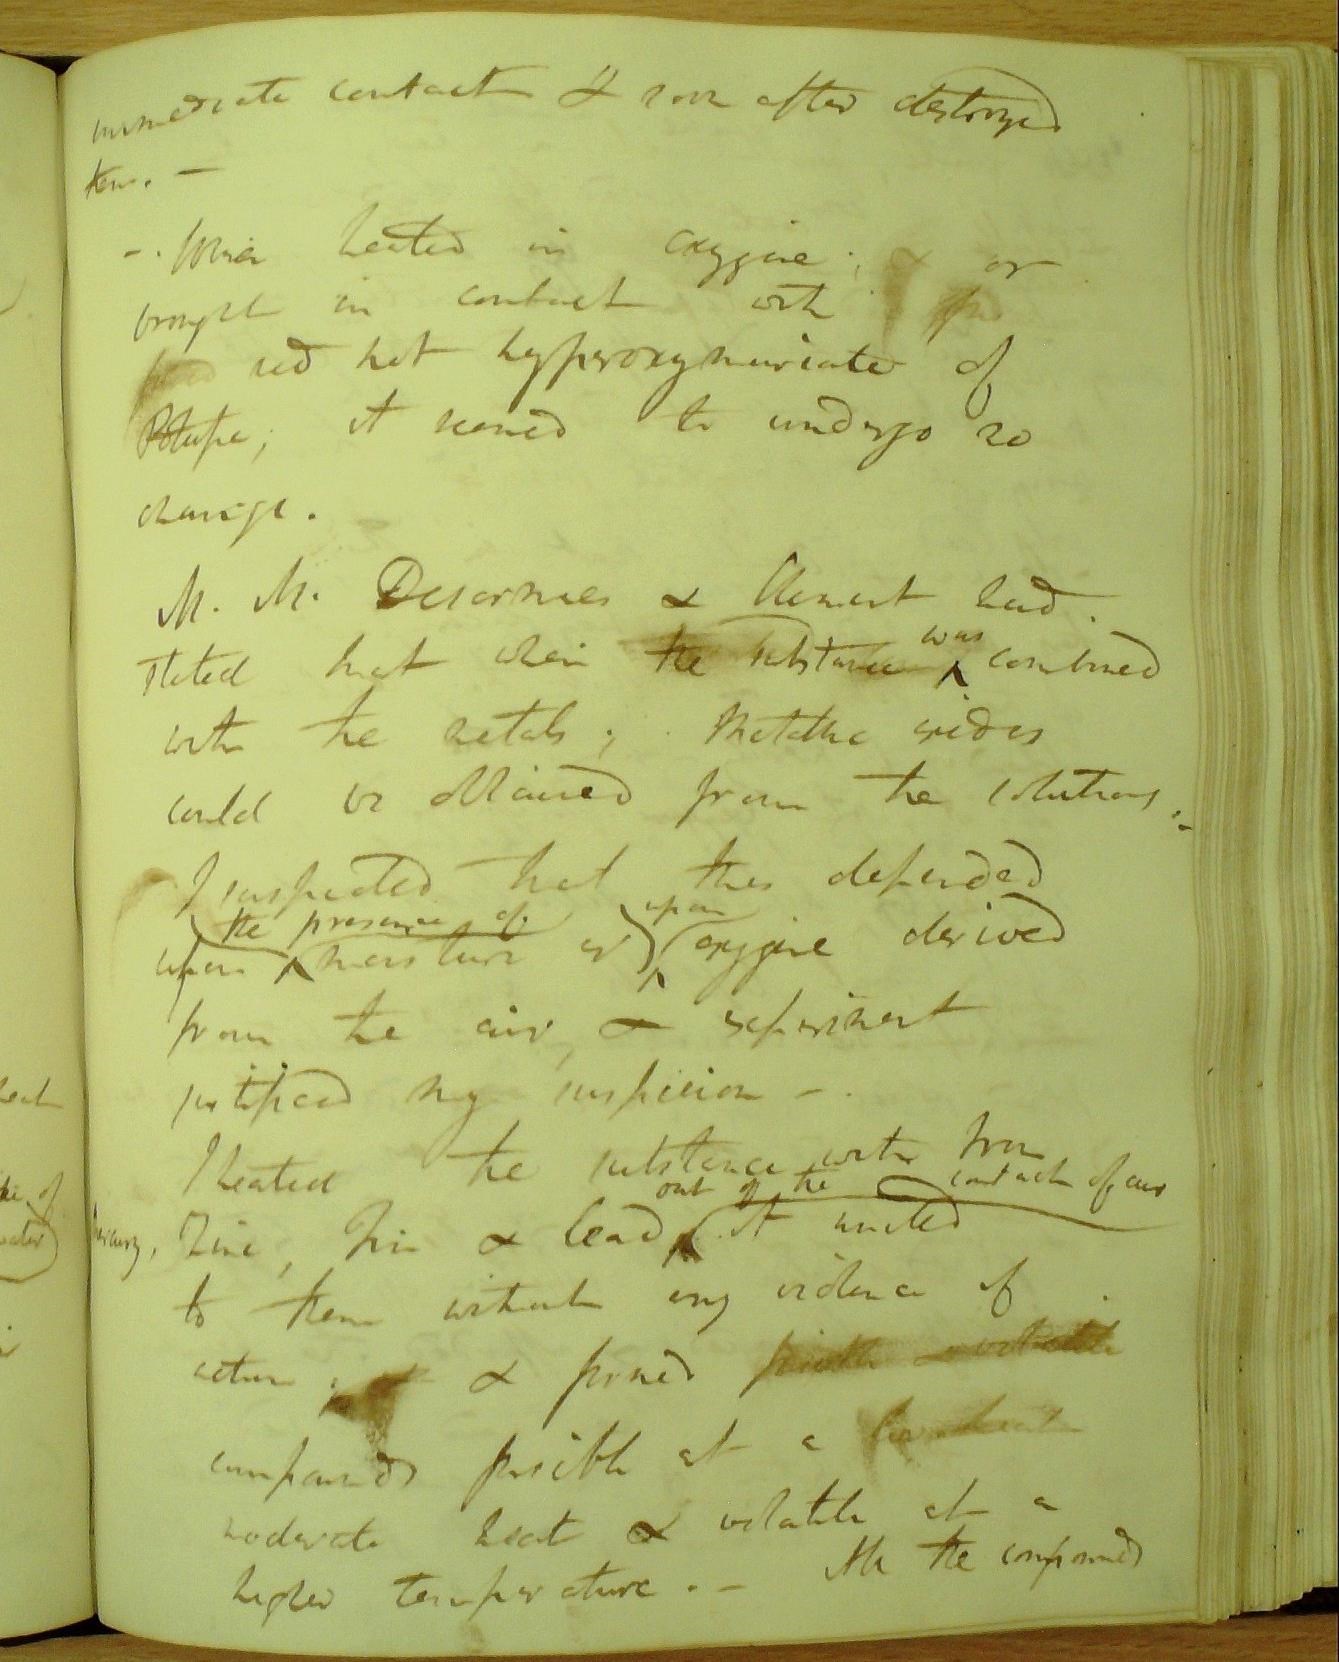 immediate contact & soon after destroyed
them. —
—. When heated in oxygine; & or
brought in contact with
red hot hyperoxymuriate of
Potash; it seemed to undergo no
change.
M. M. Desormes & Clement had
stated that when the substance was combined
with the metals; Metallic oxides
could be obtained from the solutions;—
I suspected that this depended
upon the presence of moisture or upon oxygine derived
from the air, & experiment
justified my suspicion —.
I heated the substance with Iron
Mercury, Zinc, Tin & Lead, out of the contact of air it united
to them without any violence of
action; & formed fusible & volatile
compounds fusible at a low heat
moderate heat & volatile at a
higher temperature. — All the compounds
heat
of
water